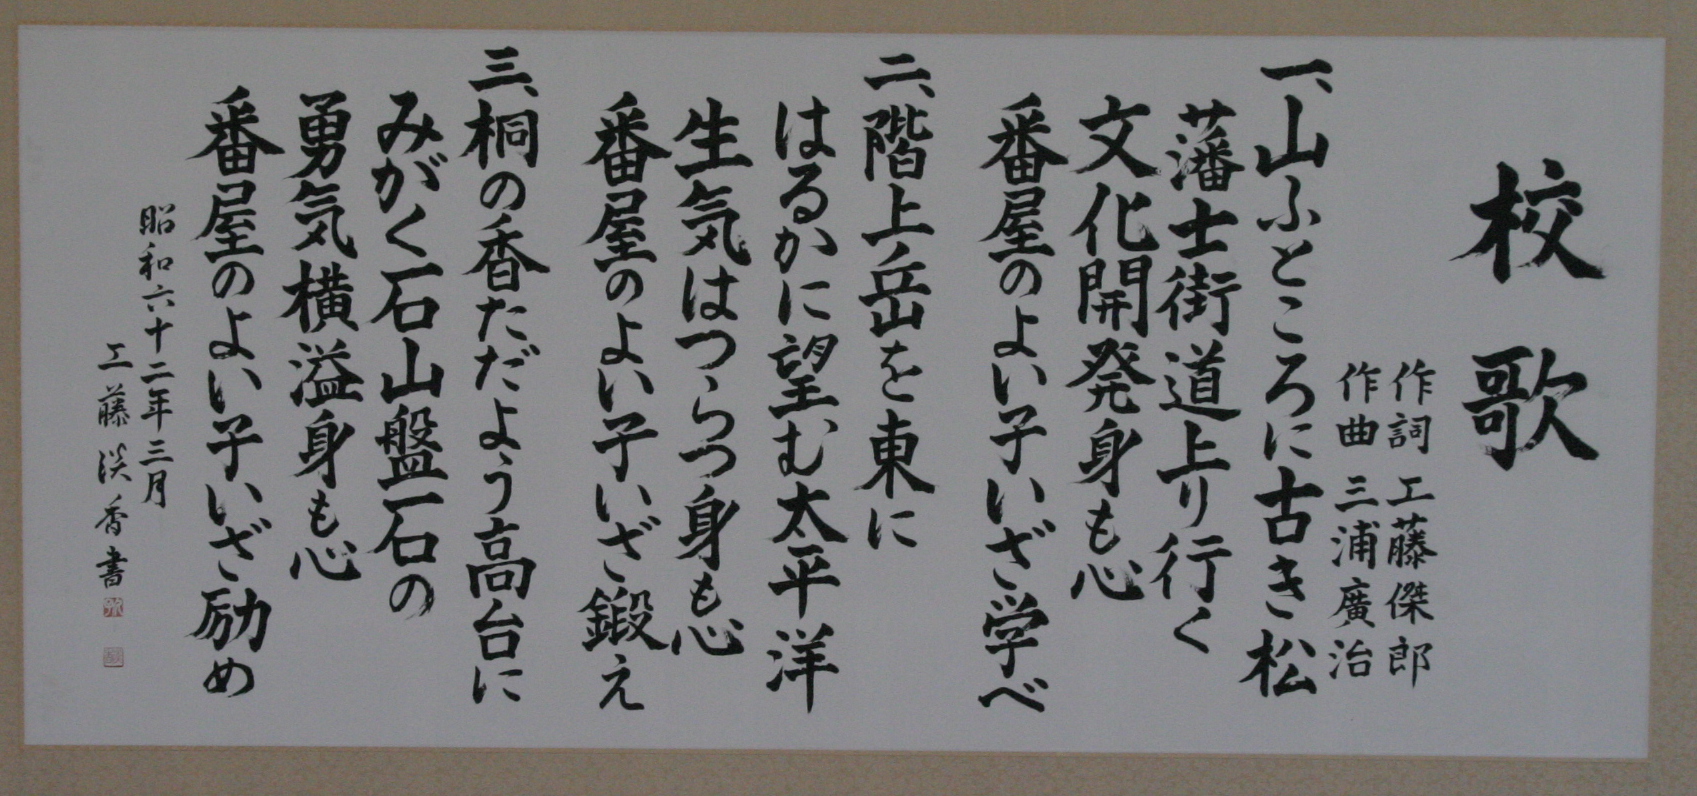 校歌
作詞 工藤傑郎
作曲 三浦廣治
一、山ふところに古き松
藩士街道上り行く
文化開発身も心
番屋のよい子いざ学べ
二、階上岳を東に
はるかに望む太平洋
生気はつらつ身も心
番屋のよい子いざ鍛え
三、桐の香ただよう高台に
みがく一石山盤石の
勇気横溢身も心
番屋のよい子いざ励め
昭和六十二年三月
工藤淡香書